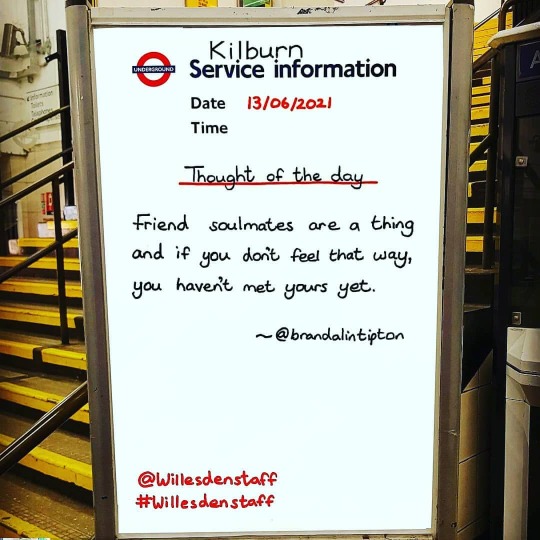 Kilburn
UNDERGROUND
Service information
Date 13/06/2021
Time
Thought of the day
Friend soulmates are a thing
and if you don't feel that way,
you haven't met yours yet.
~@brandalintipton
@Willesdenstaff
#Willesdenstaff
Information
Tickets
Telephones